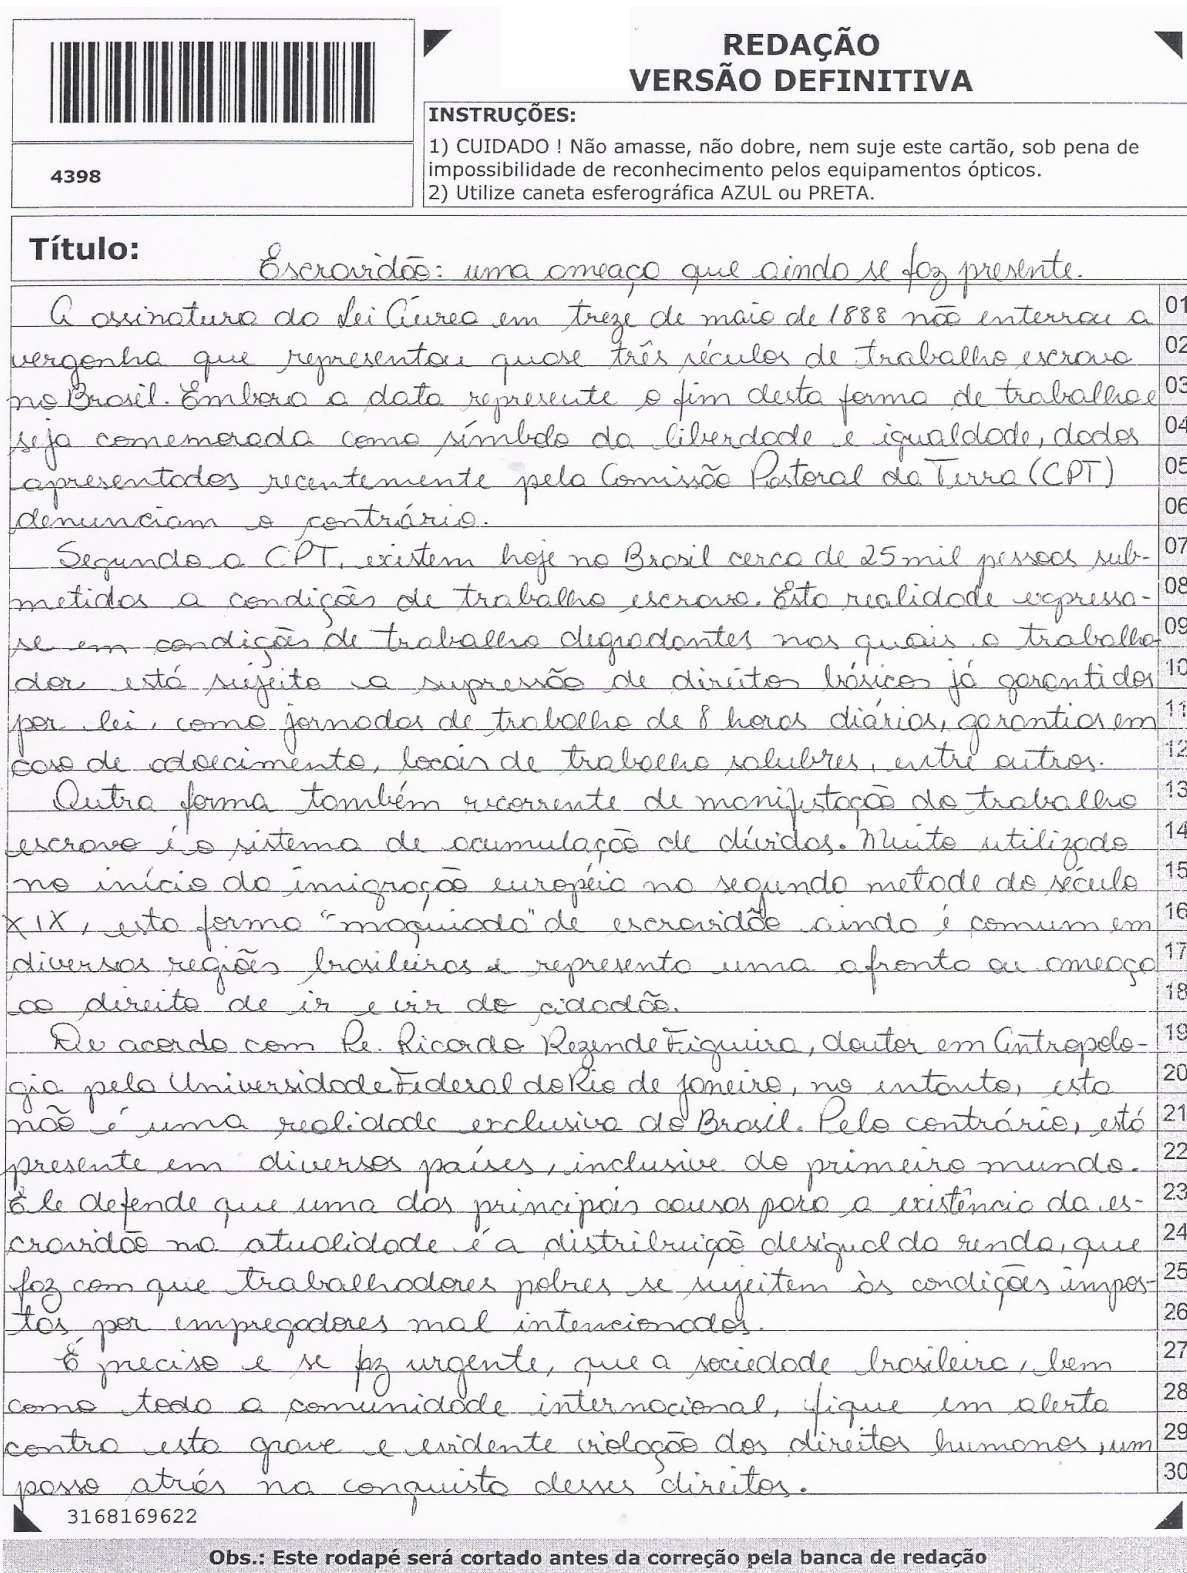 REDAÇÃO
VERSÃO DEFINITIVA
INSTRUÇÕES:
1) CUIDADO ! Não amasse, não dobre, nem suje este cartão, sob pena de
impossibilidade de reconhecimento pelos equipamentos ópticos.
2) Utilize caneta esferográfica AZUL ou PRETA.
4398
Título: Escravidão: uma ameaça que ainda se faz presente.
A assinatura da Lei Áurea em treze de maio de 1888 não enterrou a 01
vergonha que representou quase três séculos de trabalho escravo 02
no Brasil. Embora a data represente o fim desta forma de trabalho e 03
seja comemorada como símbolo da liberdade e igualdade, dados 04
apresentados recentemente pela Comissão Pastoral da Terra (CPT) 05
denunciam o contrário. 06
Segundo a CPT, existem hoje no Brasil cerca de 25 mil pessoas sub- 07
metidas a condições de trabalho escravo. Esta realidade expressa- 08
se em condições de trabalho degradantes nas quais o trabalha- 09
dor está sujeito a supressão de direitos básicos já garantidos 10
por lei, como jornadas de trabalho de 8 horas diárias, garantias em 11
caso de adoecimento, locais de trabalho salubres, entre outros. 12
Outra forma também recorrente de manifestação do trabalho 13
escravo é o sistema de acumulação de dívidas. Muito utilizado 14
no início da imigração européia na segunda metade do século 15
XIX, esta forma "maquiada" de escravidão ainda é comum em 16
diversas regiões brasileiras e representa uma afronta ou ameaça 17
ao direito de ir e vir do cidadão. 18
De acordo com Pe. Ricardo Rezende Figueira, doutor em Antropolo- 19
gia pela Universidade Federal do Rio de Janeiro, no entanto, esta 20
não é uma realidade exclusiva do Brasil. Pelo contrário, está 21
presente em diversos países, inclusive do primeiro mundo. 22
Ele defende que uma das principais causas para a existência da es- 23
cravidão na atualidade é a distribuição desigual da renda, que 24
faz com que trabalhadores pobres se sujeitem às condições impos- 25
tas por empregadores mal intencionados. 26
É preciso e se faz urgente, que a sociedade brasileira, bem 27
como toda a comunidade internacional, fique em alerta 28
contra esta grave e evidente violação dos direitos humanos, um 29
passo atrás na conquista desses direitos. 30
3168169622
Obs.: Este rodapé será cortado antes da correção pela banca de redação